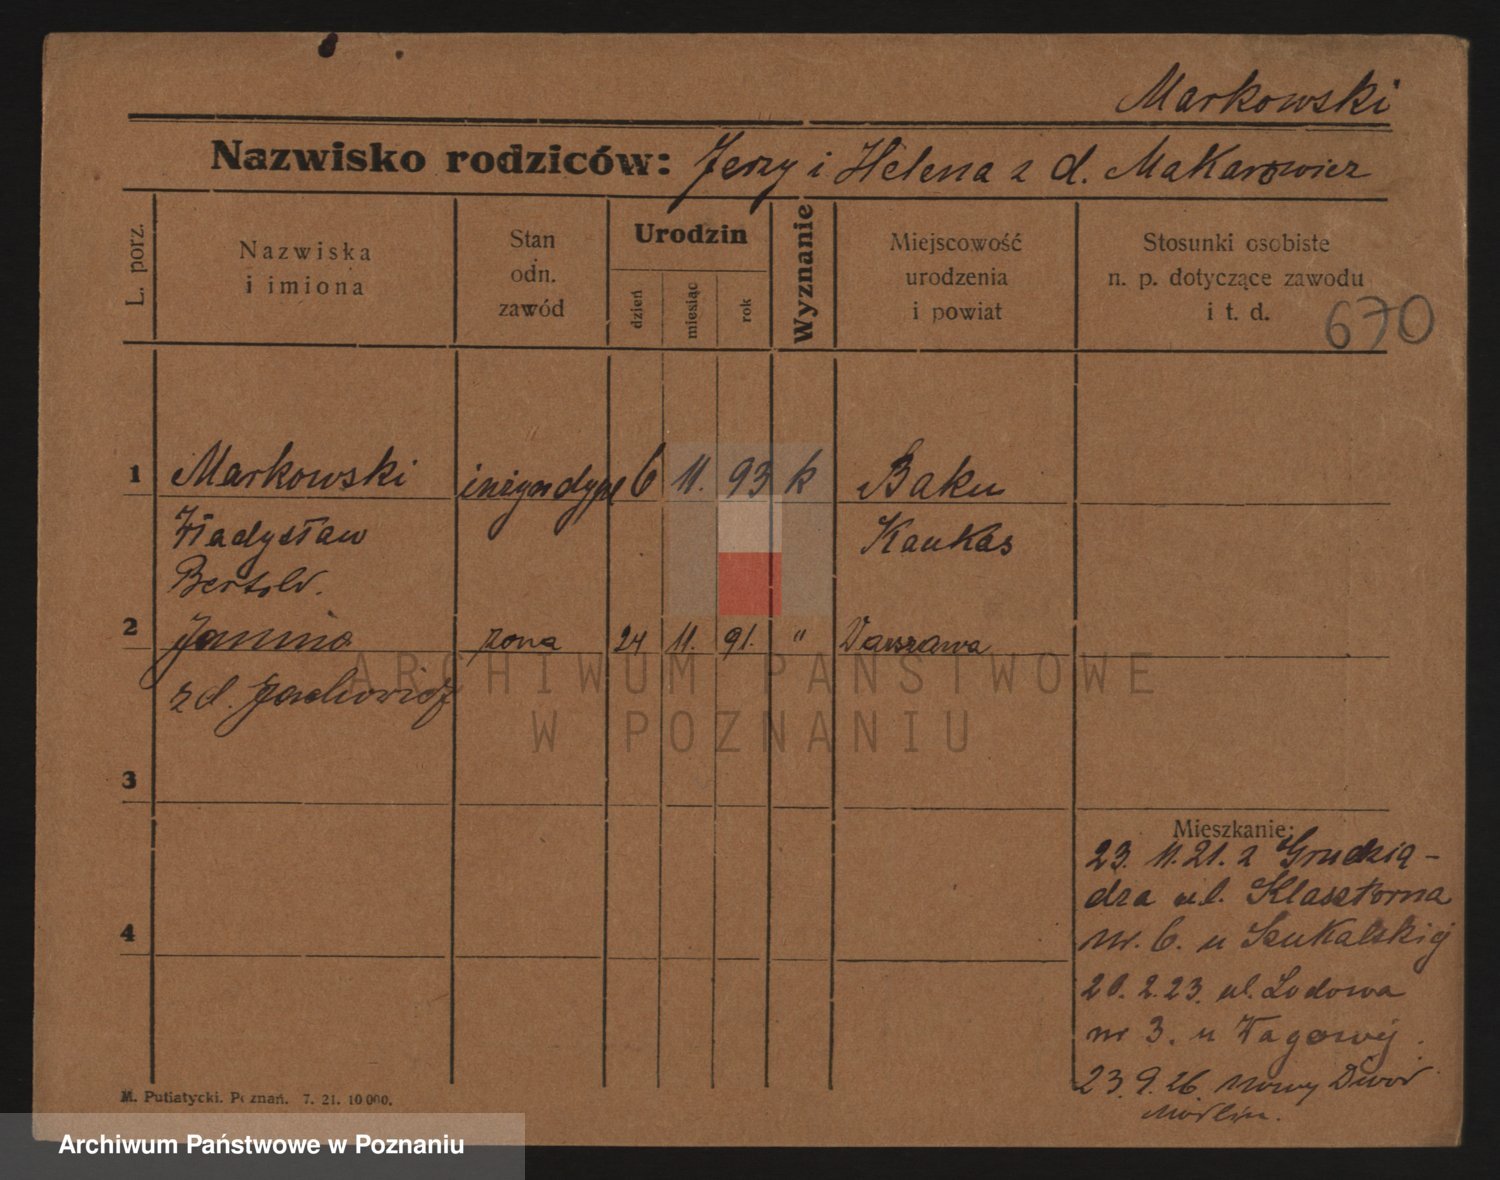 Markowski
Nazwisko rodziców: Jerzy i Helena z d. Makarowicz
L. porz.
Nazwiska
i imiona
Stan
odn.
zawód
Urodzin
dzień
miesiąc
rok
Wyznanie
Miejscowość
urodzenia
i powiat
Stosunki osobiste
n. p. dotyczące zawodu
i t. d.
670
1 Markowski 6 11. 93 k Baku
Władysław Kaukas
Bertold.
2 Janina żona 24 11. 91. " Warszawa
z d.
3
4
Mieszkanie:
23. 11. 21. z Grudzią-
dza ul. Klasztorna
nr. 6. u Szukalskiej
20. 2. 23. ul. Lodowa
nr 3. u Wagowej.
23. 9. 26. Nowy Dwór
Modlin.
M. Putiatycki. Poznań. 7. 21. 10 000.
ARCHIWUM PAŃSTWOWE
W POZNANIU
Archiwum Państwowe w Poznaniu